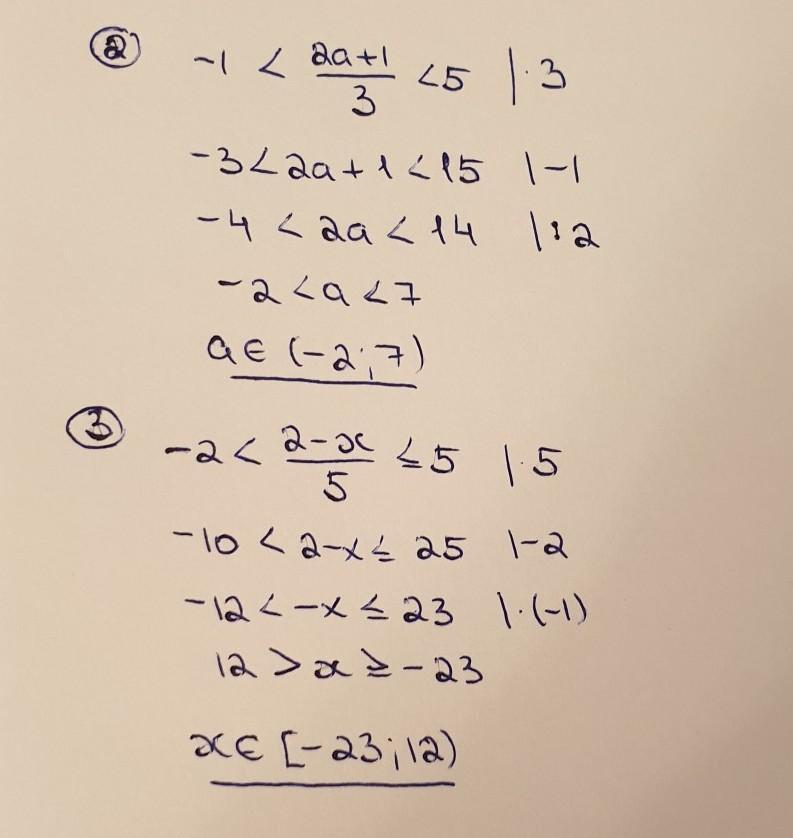 ② -1 < (2a+1)/3 < 5 | · 3
-3 < 2a + 1 < 15 | -1
-4 < 2a < 14 | : 2
-2 < a < 7
a ∈ (-2; 7)
③ -2 < (2-x)/5 ≤ 5 | · 5
-10 < 2-x ≤ 25 | -2
-12 < -x ≤ 23 | · (-1)
12 > x ≥ -23
x ∈ [-23; 12)